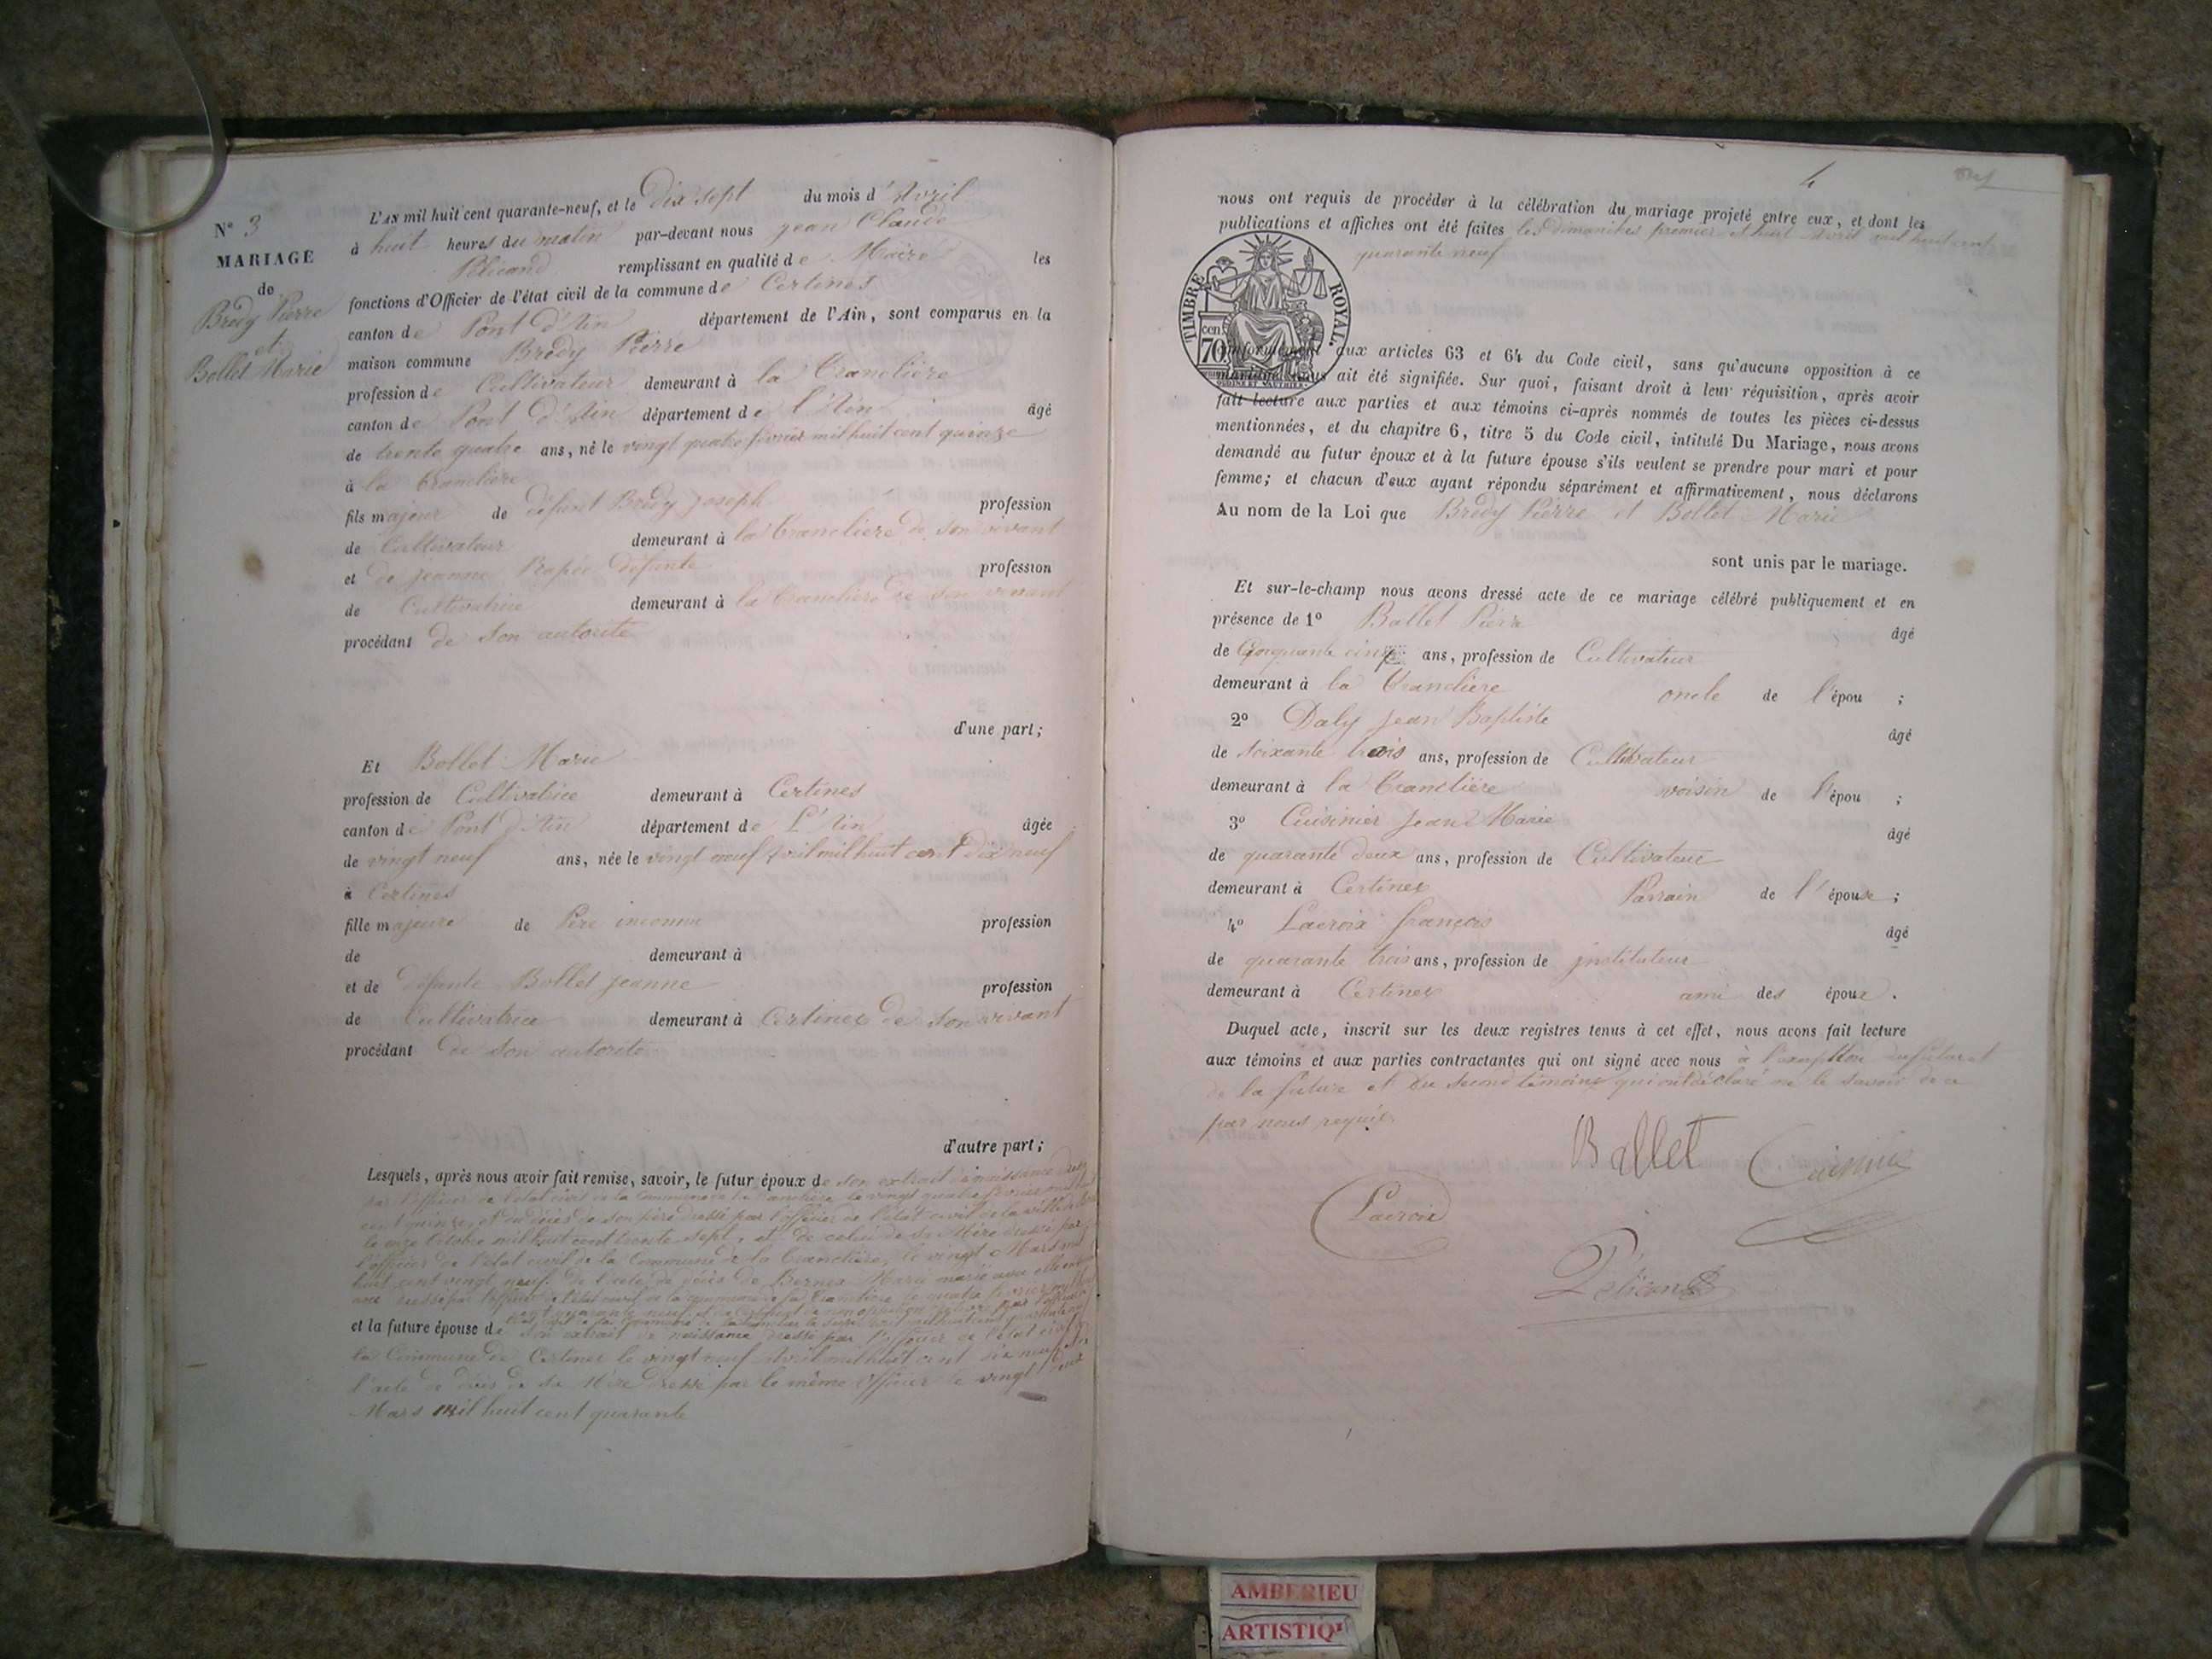 N° 3
MARIAGE
de
Bredy Pierre
et
Bollet Marie
L'AN mil huit cent quarante-neuf, et le dix sept du mois d'Avril
à huit heures du matin par-devant nous jean Claude
Pélicand remplissant en qualité de Maire les
fonctions d'Officier de l'état civil de la commune de Certines
canton de Pont d'Ain département de l'Ain, sont comparus en la
maison commune Bredy Pierre
profession de Cultivateur demeurant à la Tranclière
canton de Pont d'Ain département de l'Ain âgé
de trente quatre ans, né le vingt quatre février mil huit cent quinze
à la Tranclière
fils majeur de défunt Bredy joseph profession
de Cultivateur demeurant à la Tranclière de son vivant
et de jeanne défunte profession
de Cultivatrice demeurant à la Tranclière de son vivant
procédant de son autorité
d'une part;
Et Bollet Marie
profession de Cultivatrice demeurant à Certines
canton de Pont d'Ain département de L'Ain âgée
de vingt neuf ans, née le vingt neuf Avril mil huit cent dix neuf
à Certines
fille majeure de Père inconnu profession
de demeurant à
et de défunte Bollet jeanne profession
de Cultivatrice demeurant à Certines de son vivant
procédant de son autorité
d'autre part;
Lesquels, après nous avoir fait remise, savoir, le futur époux de son extrait de naissance dressé
par l'officier de l'état civil de la Commune de la Tranclière le vingt quatre février mil huit
cent quinze, et du décès de son père dressé par l'officier de l'état civil de la ville de
le onze Octobre mil huit cent trente sept, et de celui de sa Mère dressé par
l'officier de l'état civil de la Commune de la Tranclière, le vingt Mars mil
huit cent vingt neuf. De l'acte de décès de Marie marié avec elle en
dressé par l'officier de l'état civil de la commune de la Tranclière le quatre février mil huit
cent quarante neuf, et de certificat de non opposition par l'officier
et la future épouse de
son extrait de naissance dressé par l'officier de l'état civil de
la Commune de Certines le vingt neuf Avril mil huit cent dix neuf, et
l'acte de décès de sa Mère dressé par le même Officier le vingt deux
Mars mil huit cent quarante
4
nous ont requis de procéder à la célébration du mariage projeté entre eux, et dont les
publications et affiches ont été faites les dimanches premier et huit Avril mil huit cent
quarante neuf
TIMBRE ROYAL.
70 cen.
conformément aux articles 63 et 64 du Code civil, sans qu'aucune opposition à ce
mariage nous ait été signifiée. Sur quoi, faisant droit à leur réquisition, après avoir
fait lecture aux parties et aux témoins ci-après nommés de toutes les pièces ci-dessus
mentionnées, et du chapitre 6, titre 5 du Code civil, intitulé Du Mariage, nous avons
demandé au futur époux et à la future épouse s'ils veulent se prendre pour mari et pour
femme; et chacun d'eux ayant répondu séparément et affirmativement, nous déclarons
Au nom de la Loi que Bredy Pierre et Bollet Marie
sont unis par le mariage.
Et sur-le-champ nous avons dressé acte de ce mariage célébré publiquement et en
présence de 1° Ballet Pierre âgé
de Cinquante cinq ans, profession de Cultivateur
demeurant à la Tranclière oncle de l'épou ;
2° Daly jean Baptiste âgé
de soixante trois ans, profession de Cultivateur
demeurant à la Tranclière voisin de l'épou ;
3° Cuisinier jean Marie âgé
de quarante deux ans, profession de Cultivateur
demeurant à Certines Parrain de l'épouse ;
4° Lacroix françois âgé
de quarante trois ans, profession de jnstituteur
demeurant à Certines ami des époux .
Duquel acte, inscrit sur les deux registres tenus à cet effet, nous avons fait lecture
aux témoins et aux parties contractantes qui ont signé avec nous à l'exception du futur et
de la future et du second témoins qui ont déclaré ne le savoir de ce
par nous requis
Ballet
Cuisinier
Lacroix
Pélicand
AMBERIEU
ARTISTIQ